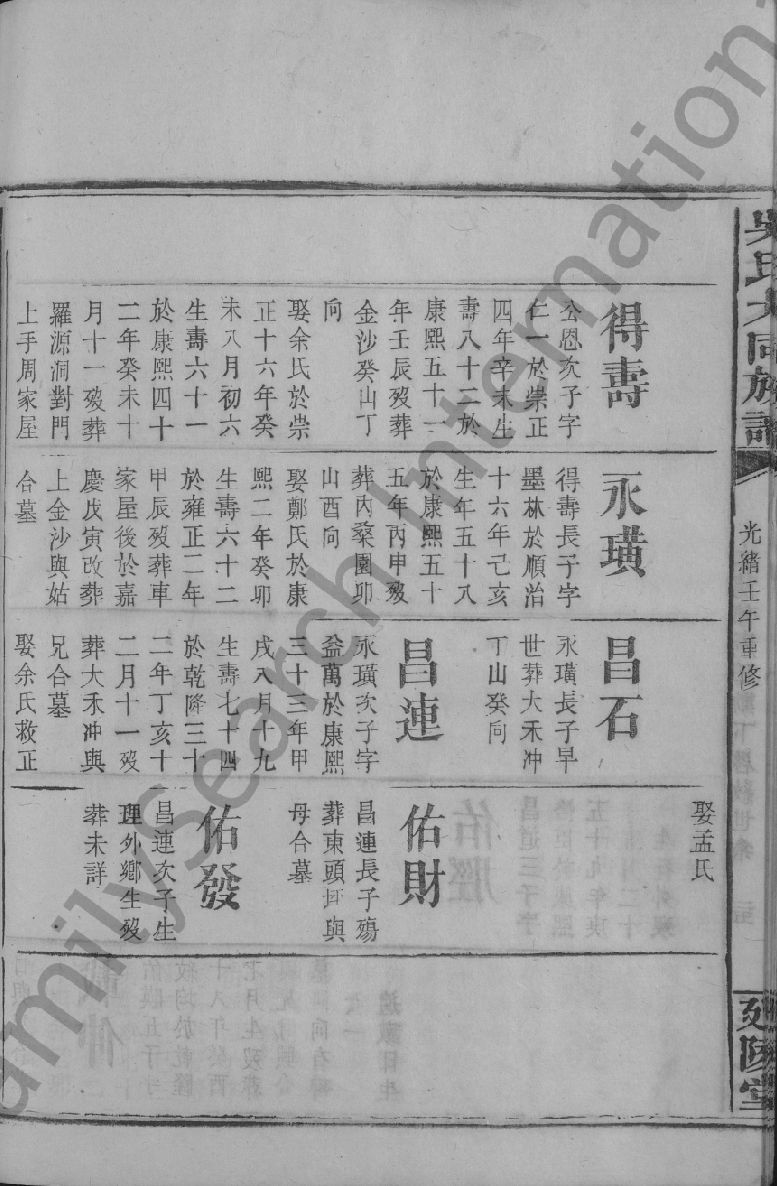 吳氏大同族譜
光緒壬午重修
延陵堂
得壽
公恩次子字
仁一於崇正
四年辛未生
壽八十二於
康熙五十一
年壬辰歿葬
金沙癸山丁
向
娶余氏於崇
正十六年癸
未八月初六
生壽六十一
於康熙四十
二年癸未十
月十一歿葬
羅源洞對門
上手周家屋
永璜
得壽長子字
墨林於順治
十六年己亥
生年五十八
於康熙五十
五年丙申歿
葬內棸園卯
山酉向
娶鄭氏於康
熙二年癸卯
生壽六十二
於雍正二年
甲辰歿葬車
家屋後於嘉
慶戊寅改葬
上金沙與姑
合墓
昌石
永璜長子早
世葬大禾冲
丁山癸向
昌連
永璜次子字
益萬於康熙
三十三年甲
戌八月十九
生壽七十四
於乾隆三十
二年丁亥十
二月十一歿
葬大禾冲與
兄合墓
娶余氏救正
娶孟氏
佑財
昌連長子殤
葬東頭坪與
母合墓
佑發
昌連次子生
理外鄉生歿
葬未詳
FamilySearch International